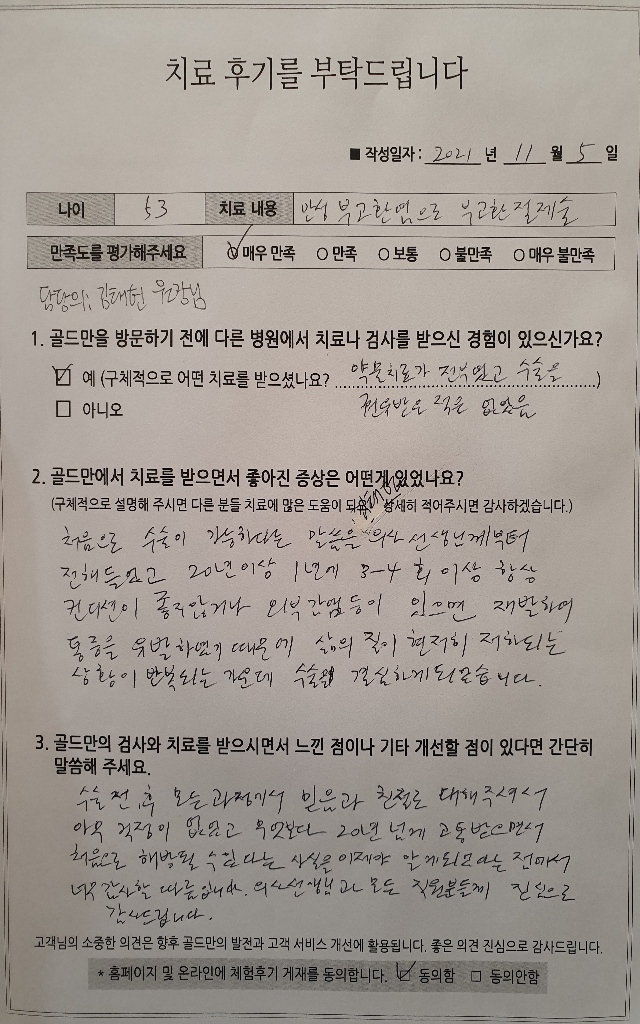 치료 후기를 부탁드립니다
■ 작성일자 : 2021 년 11 월 5 일
나이 53 치료 내용 만성 부고환염으로 부고환절제술
만족도를 평가해주세요 매우 만족 ○ 만족 ○ 보통 ○ 불만족 ○ 매우 불만족
담당의: 김태헌 원장님
1. 골드만을 방문하기 전에 다른 병원에서 치료나 검사를 받으신 경험이 있으신가요?
☑ 예 (구체적으로 어떤 치료를 받으셨나요? 약물치료가 전부였고 수술을 )
□ 아니오 권유받은 적은 없었음
2. 골드만에서 치료를 받으면서 좋아진 증상은 어떤게 있었나요?
(구체적으로 설명해 주시면 다른 분들 치료에 많은 도움이 되 상세히 적어주시면 감사하겠습니다.)
처음으로 수술이 가능하다는 말씀을 의사 선생님께부터
전해들었고 20년이상 1년에 3-4 회 이상 항상
컨디션이 좋지않거나 외부감염등이 있으면 재발하여
통증을 유발하였기 때문에 삶의 질이 현저히 저하되는
상황이 반복되는 가운데 수술을 결심하게되었습니다.
3. 골드만의 검사와 치료를 받으시면서 느낀 점이나 기타 개선할 점이 있다면 간단히
말씀해 주세요.
수술 전,후 모든과정에서 믿음과 친절로 대해주셔서
아무 걱정이 없었고 무엇보다 20년 넘게 고통받으면서
처음으로 해방될 수 있다는 사실을 이제야 알게되었다는 점에서
너무 감사할 따름입니다. 의사선생님과 모든 직원분들께 진심으로
감사드립니다.
고객님의 소중한 의견은 향후 골드만의 발전과 고객 서비스 개선에 활용됩니다. 좋은 의견 진심으로 감사드립니다.
* 홈페이지 및 온라인에 체험후기 게재를 동의합니다. ☑ 동의함 □ 동의안함